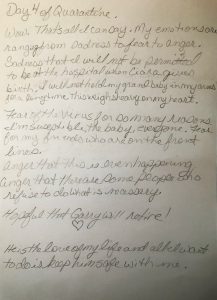 Day 4 of Quarantine.
Wow. That's all I can say. My emotions are
ranging from sadness to fear to anger.
Sadness that I will not be permitted
to be at the hospital when Ciara gives
birth. I will not hold my grand baby in my arms
for a long time. This weighs heavy on my heart.
Fear of the virus for so many reasons
I'm susceptible, the baby, everyone. Fear
for my friends who are on the front
lines.
Anger that this is even happening
anger that there are some people who
refuse to do what is necessary.
Hopeful that Garry will retire!
He is the love of my life and all I want
to do is keep him safe with me.